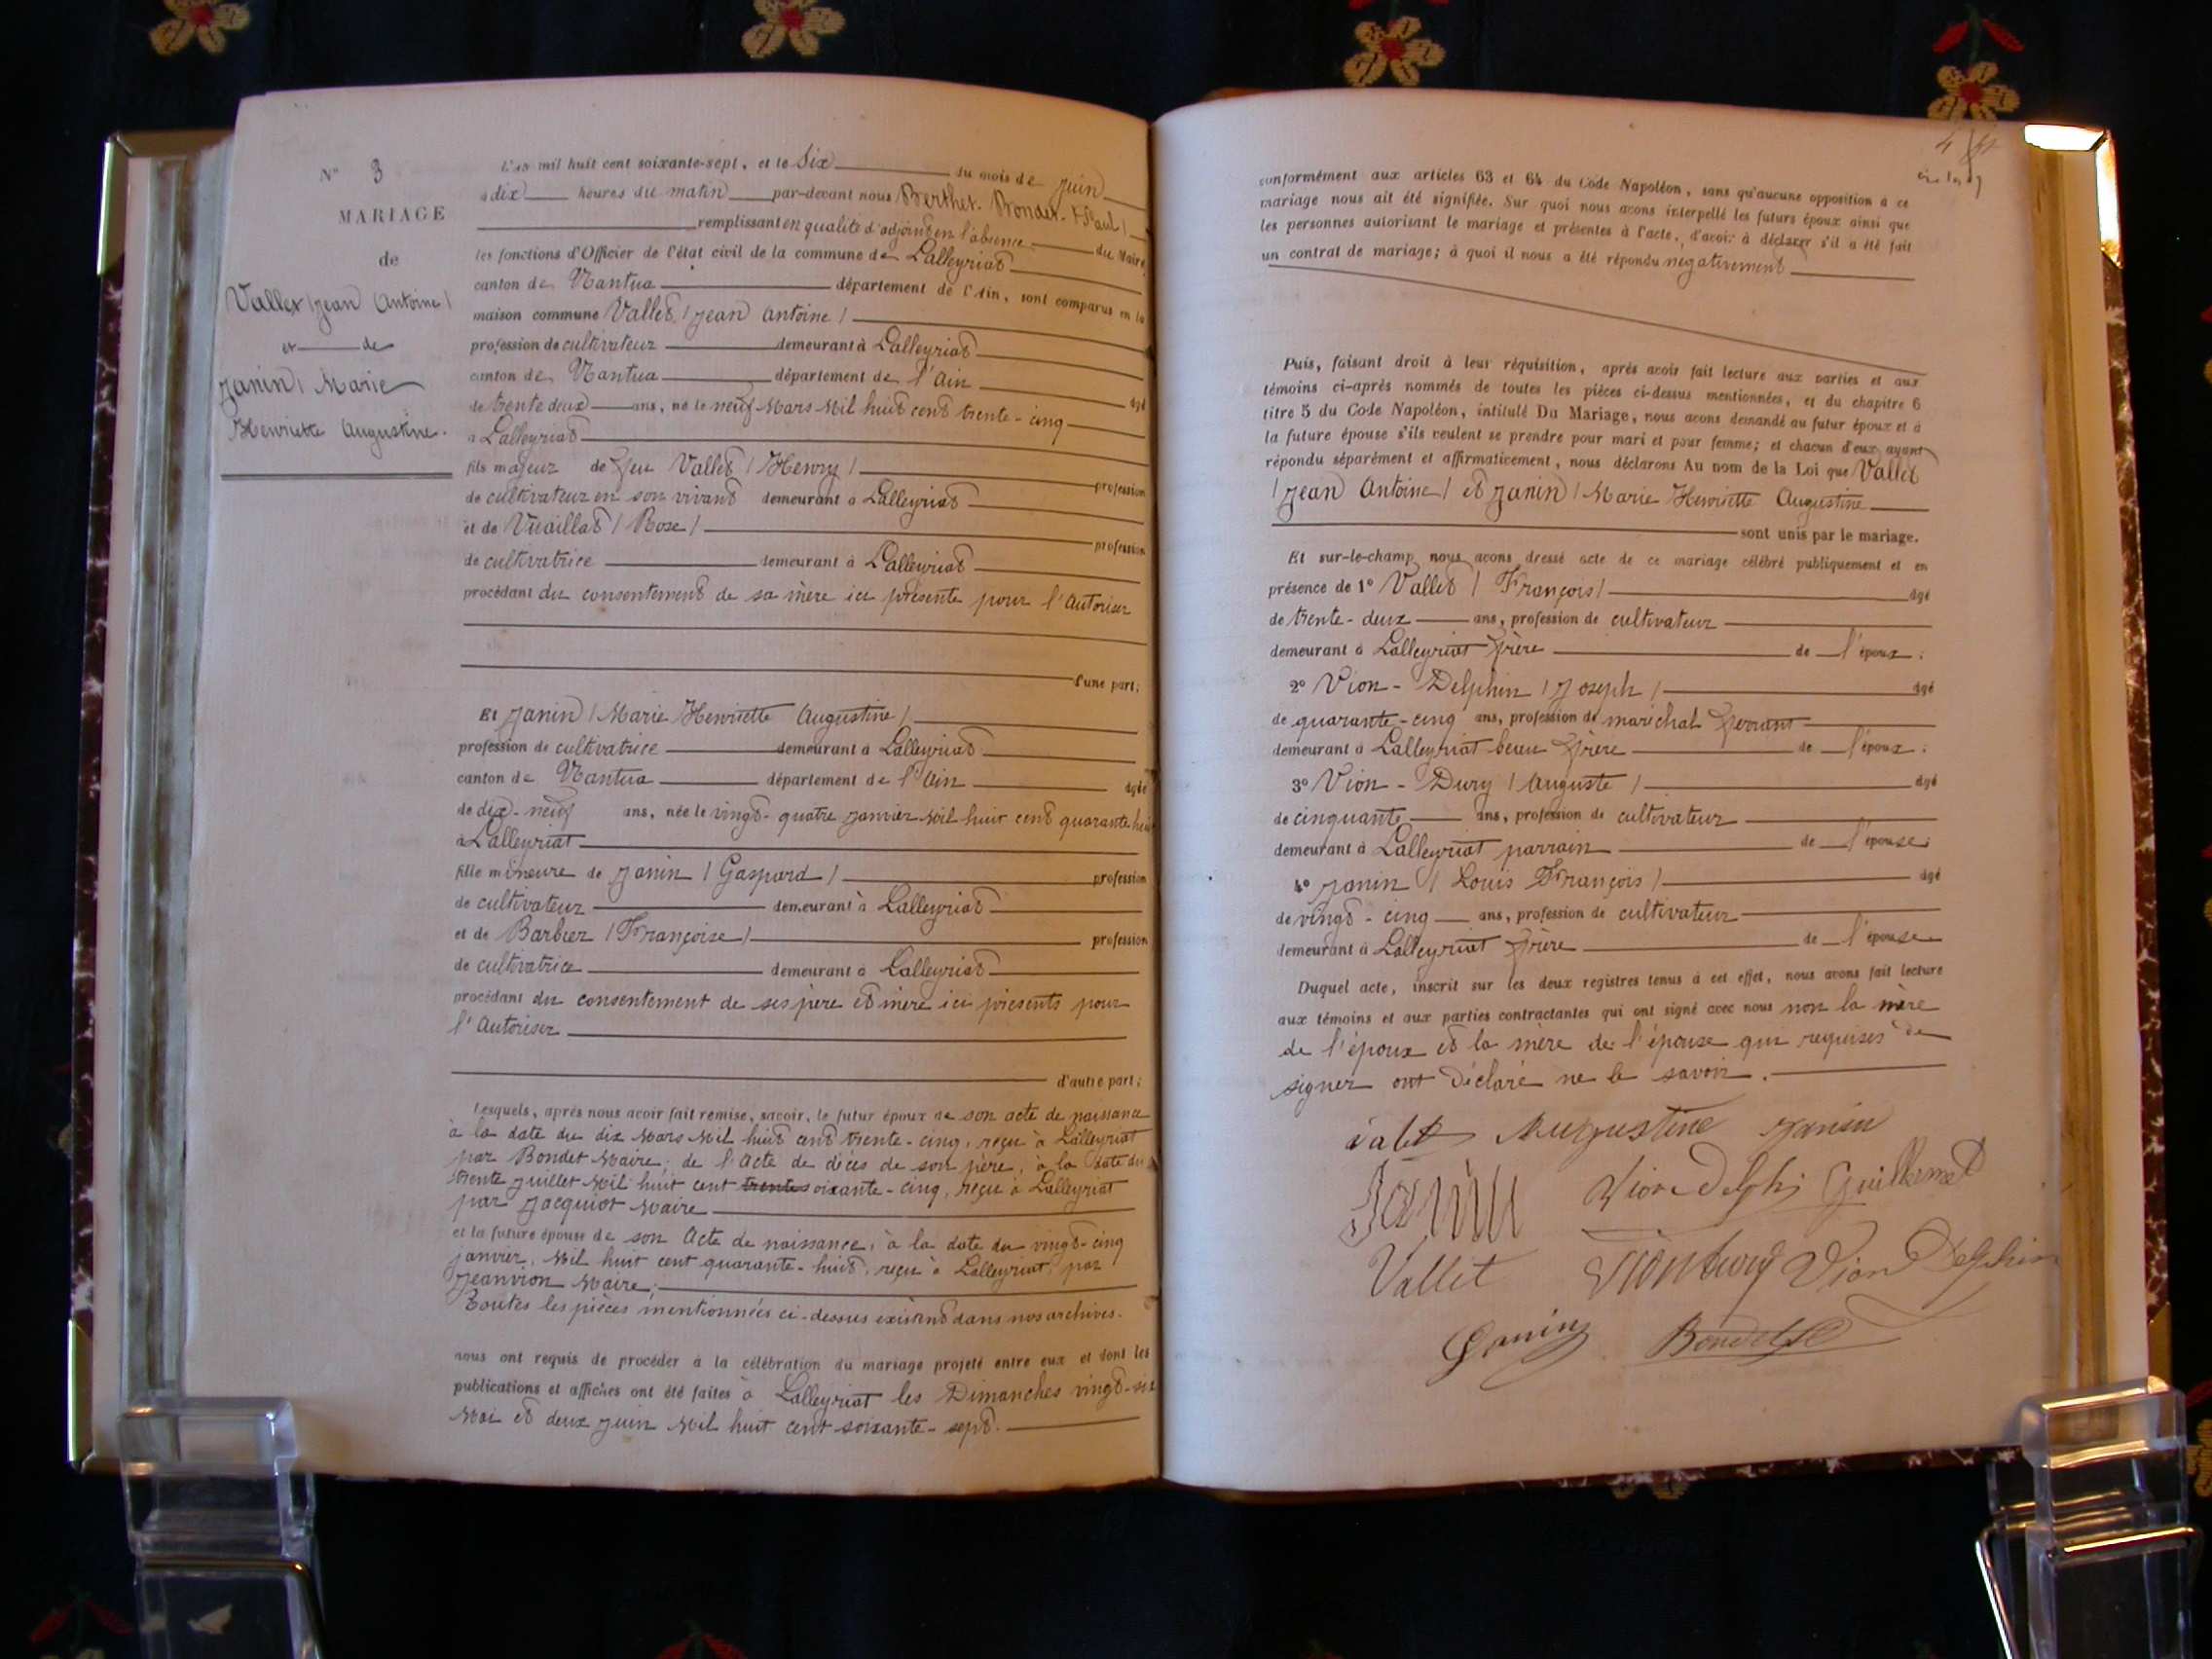 N° 3
MARIAGE
de
Vallet (Jean Antoine)
et de
Janin (Marie
Henriette Augustine.
L'an mil huit cent soixante-sept, et le Six du mois de Juin
à dix heures du matin par-devant nous Berthet-Bondet (Paul)
remplissant en qualité d'adjoint en l'absence du Maire
les fonctions d'Officier de l'état civil de la commune de Lalleyriat
canton de Nantua département de l'Ain, sont comparus en la
maison commune Vallet (Jean Antoine)
profession de cultivateur demeurant à Lalleyriat
canton de Nantua département de l'Ain âgé
de trente deux ans, né le neuf Mars Mil huit cent trente-cinq
à Lalleyriat
fils majeur de feu Vallet (Henry) profession
de cultivateur en son vivant demeurant à Lalleyriat
et de Vuaillat (Rose) profession
de cultivatrice demeurant à Lalleyriat
procédant du consentement de sa mère ici présente pour l'Autoriser
d'une part;
Et Janin (Marie Henriette Augustine)
profession de cultivatrice demeurant à Lalleyriat
canton de Nantua département de l'Ain âgée
de dix-neuf ans, née le vingt-quatre Janvier Mil huit cent quarante huit
à Lalleyriat
fille mineure de Janin (Gaspard) profession
de cultivateur demeurant à Lalleyriat
et de Barbier (Françoise) profession
de cultivatrice demeurant à Lalleyriat
procédant du consentement de ses père et mère ici présents pour
l'Autoriser
d'autre part;
Lesquels, après nous avoir fait remise, savoir, le futur époux de son acte de naissance
à la date du dix Mars Mil huit cent trente-cinq, reçu à Lalleyriat
par Bondet Maire; de l'Acte de décès de son père, à la date du
trente Juillet Mil huit cent trente soixante-cinq, reçu à Lalleyriat
par Jacquiot Maire
et la future épouse de son Acte de naissance, à la date du vingt-cinq
Janvier, Mil huit cent quarante-huit, reçu à Lalleyriat, par
Jeanvion Maire;
Toutes les pièces mentionnées ci-dessus existent dans nos archives.
nous ont requis de procéder à la célébration du mariage projeté entre eux et dont les
publications et affiches ont été faites à Lalleyriat les Dimanches vingt-six
Mai et deux Juin Mil huit cent soixante-sept.
conformément aux articles 63 et 64 du Code Napoléon, sans qu'aucune opposition à ce
mariage nous ait été signifiée. Sur quoi nous avons interpellé les futurs époux ainsi que
les personnes autorisant le mariage et présentes à l'acte, d'avoir à déclarer s'il a été fait
un contrat de mariage; à quoi il nous a été répondu négativement
Puis, faisant droit à leur réquisition, après avoir fait lecture aux parties et aux
témoins ci-après nommés de toutes les pièces ci-dessus mentionnées, et du chapitre 6
titre 5 du Code Napoléon, intitulé Du Mariage, nous avons demandé au futur époux et à
la future épouse s'ils veulent se prendre pour mari et pour femme; et chacun d'eux ayant
répondu séparément et affirmativement, nous déclarons Au nom de la Loi que Vallet
(Jean Antoine) et Janin (Marie Henriette Augustine
sont unis par le mariage.
Et sur-le-champ nous avons dressé acte de ce mariage célébré publiquement et en
présence de 1° Vallet (François) âgé
de trente-deux ans, profession de cultivateur
demeurant à Lalleyriat frère de l'époux;
2° Vion-Delphin (Joseph) âgé
de quarante-cinq ans, profession de maréchal ferrant
demeurant à Lalleyriat beau frère de l'époux;
3° Vion-Dury (Auguste) âgé
de cinquante ans, profession de cultivateur
demeurant à Lalleyriat parrain de l'épouse;
4° Janin (Louis François) âgé
de vingt-cinq ans, profession de cultivateur
demeurant à Lalleyriat frère de l'épouse
Duquel acte, inscrit sur les deux registres tenus à cet effet, nous avons fait lecture
aux témoins et aux parties contractantes qui ont signé avec nous non la mère
de l'époux et la mère de l'épouse qui requises de
signer ont déclaré ne le savoir.
valet Augustine Janin
Janin Guillermet
Vallet Vion Delphin
Janin